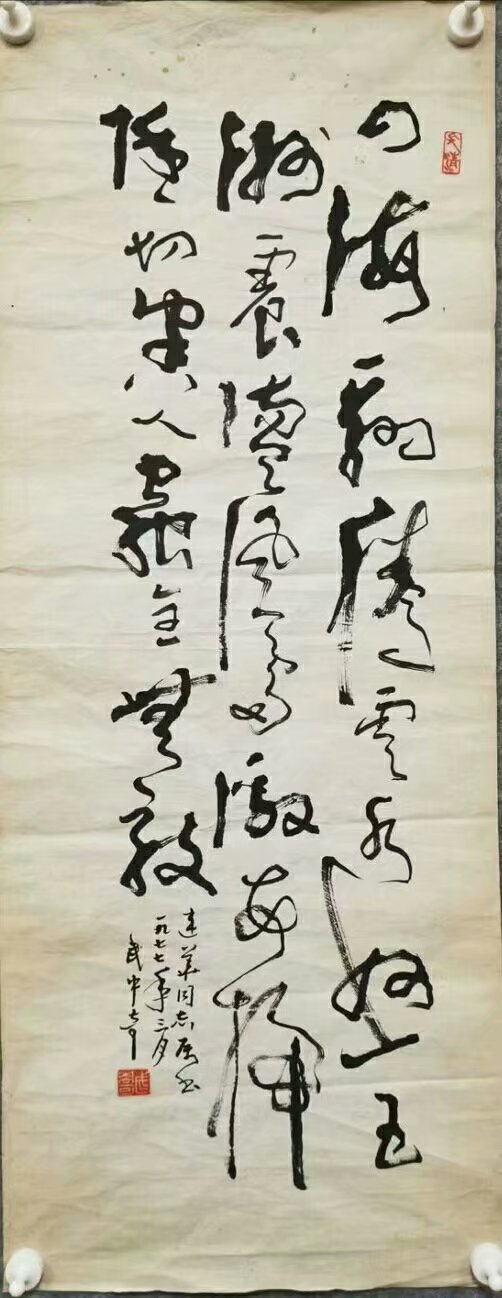 四海翻腾云水怒五
洲震荡风雷激要扫
除一切害人虫全无敌
达华同志属书
一九七七年三月
武中奇